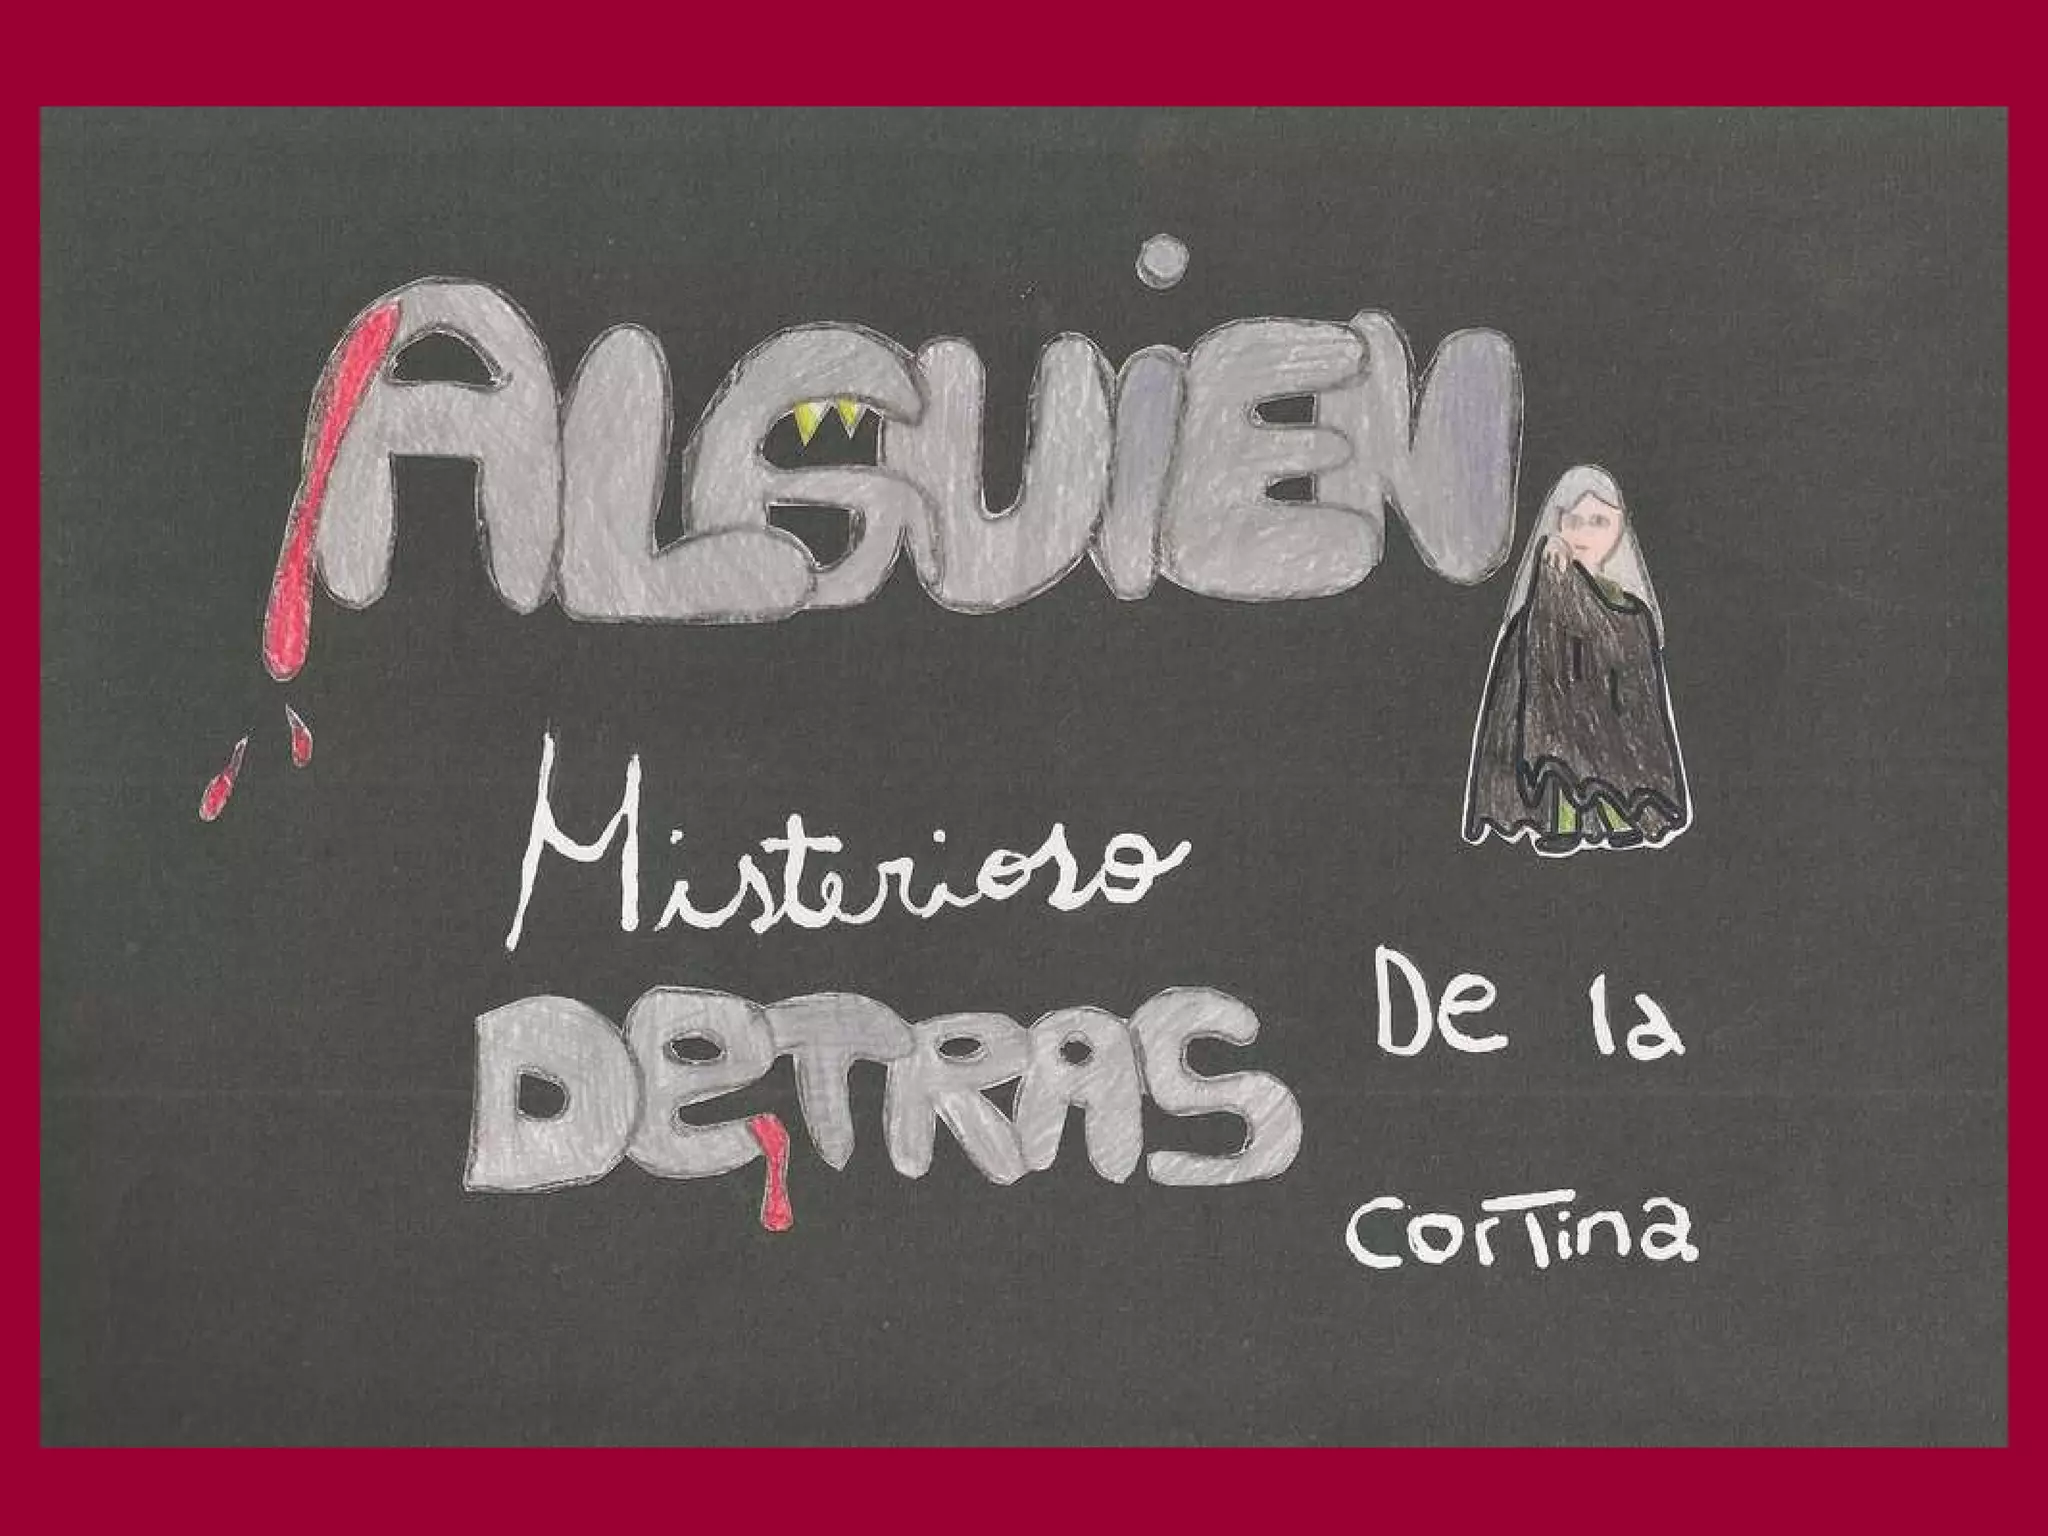 ALGUiEN
Misterioso
DeTRAS
De la
corTina